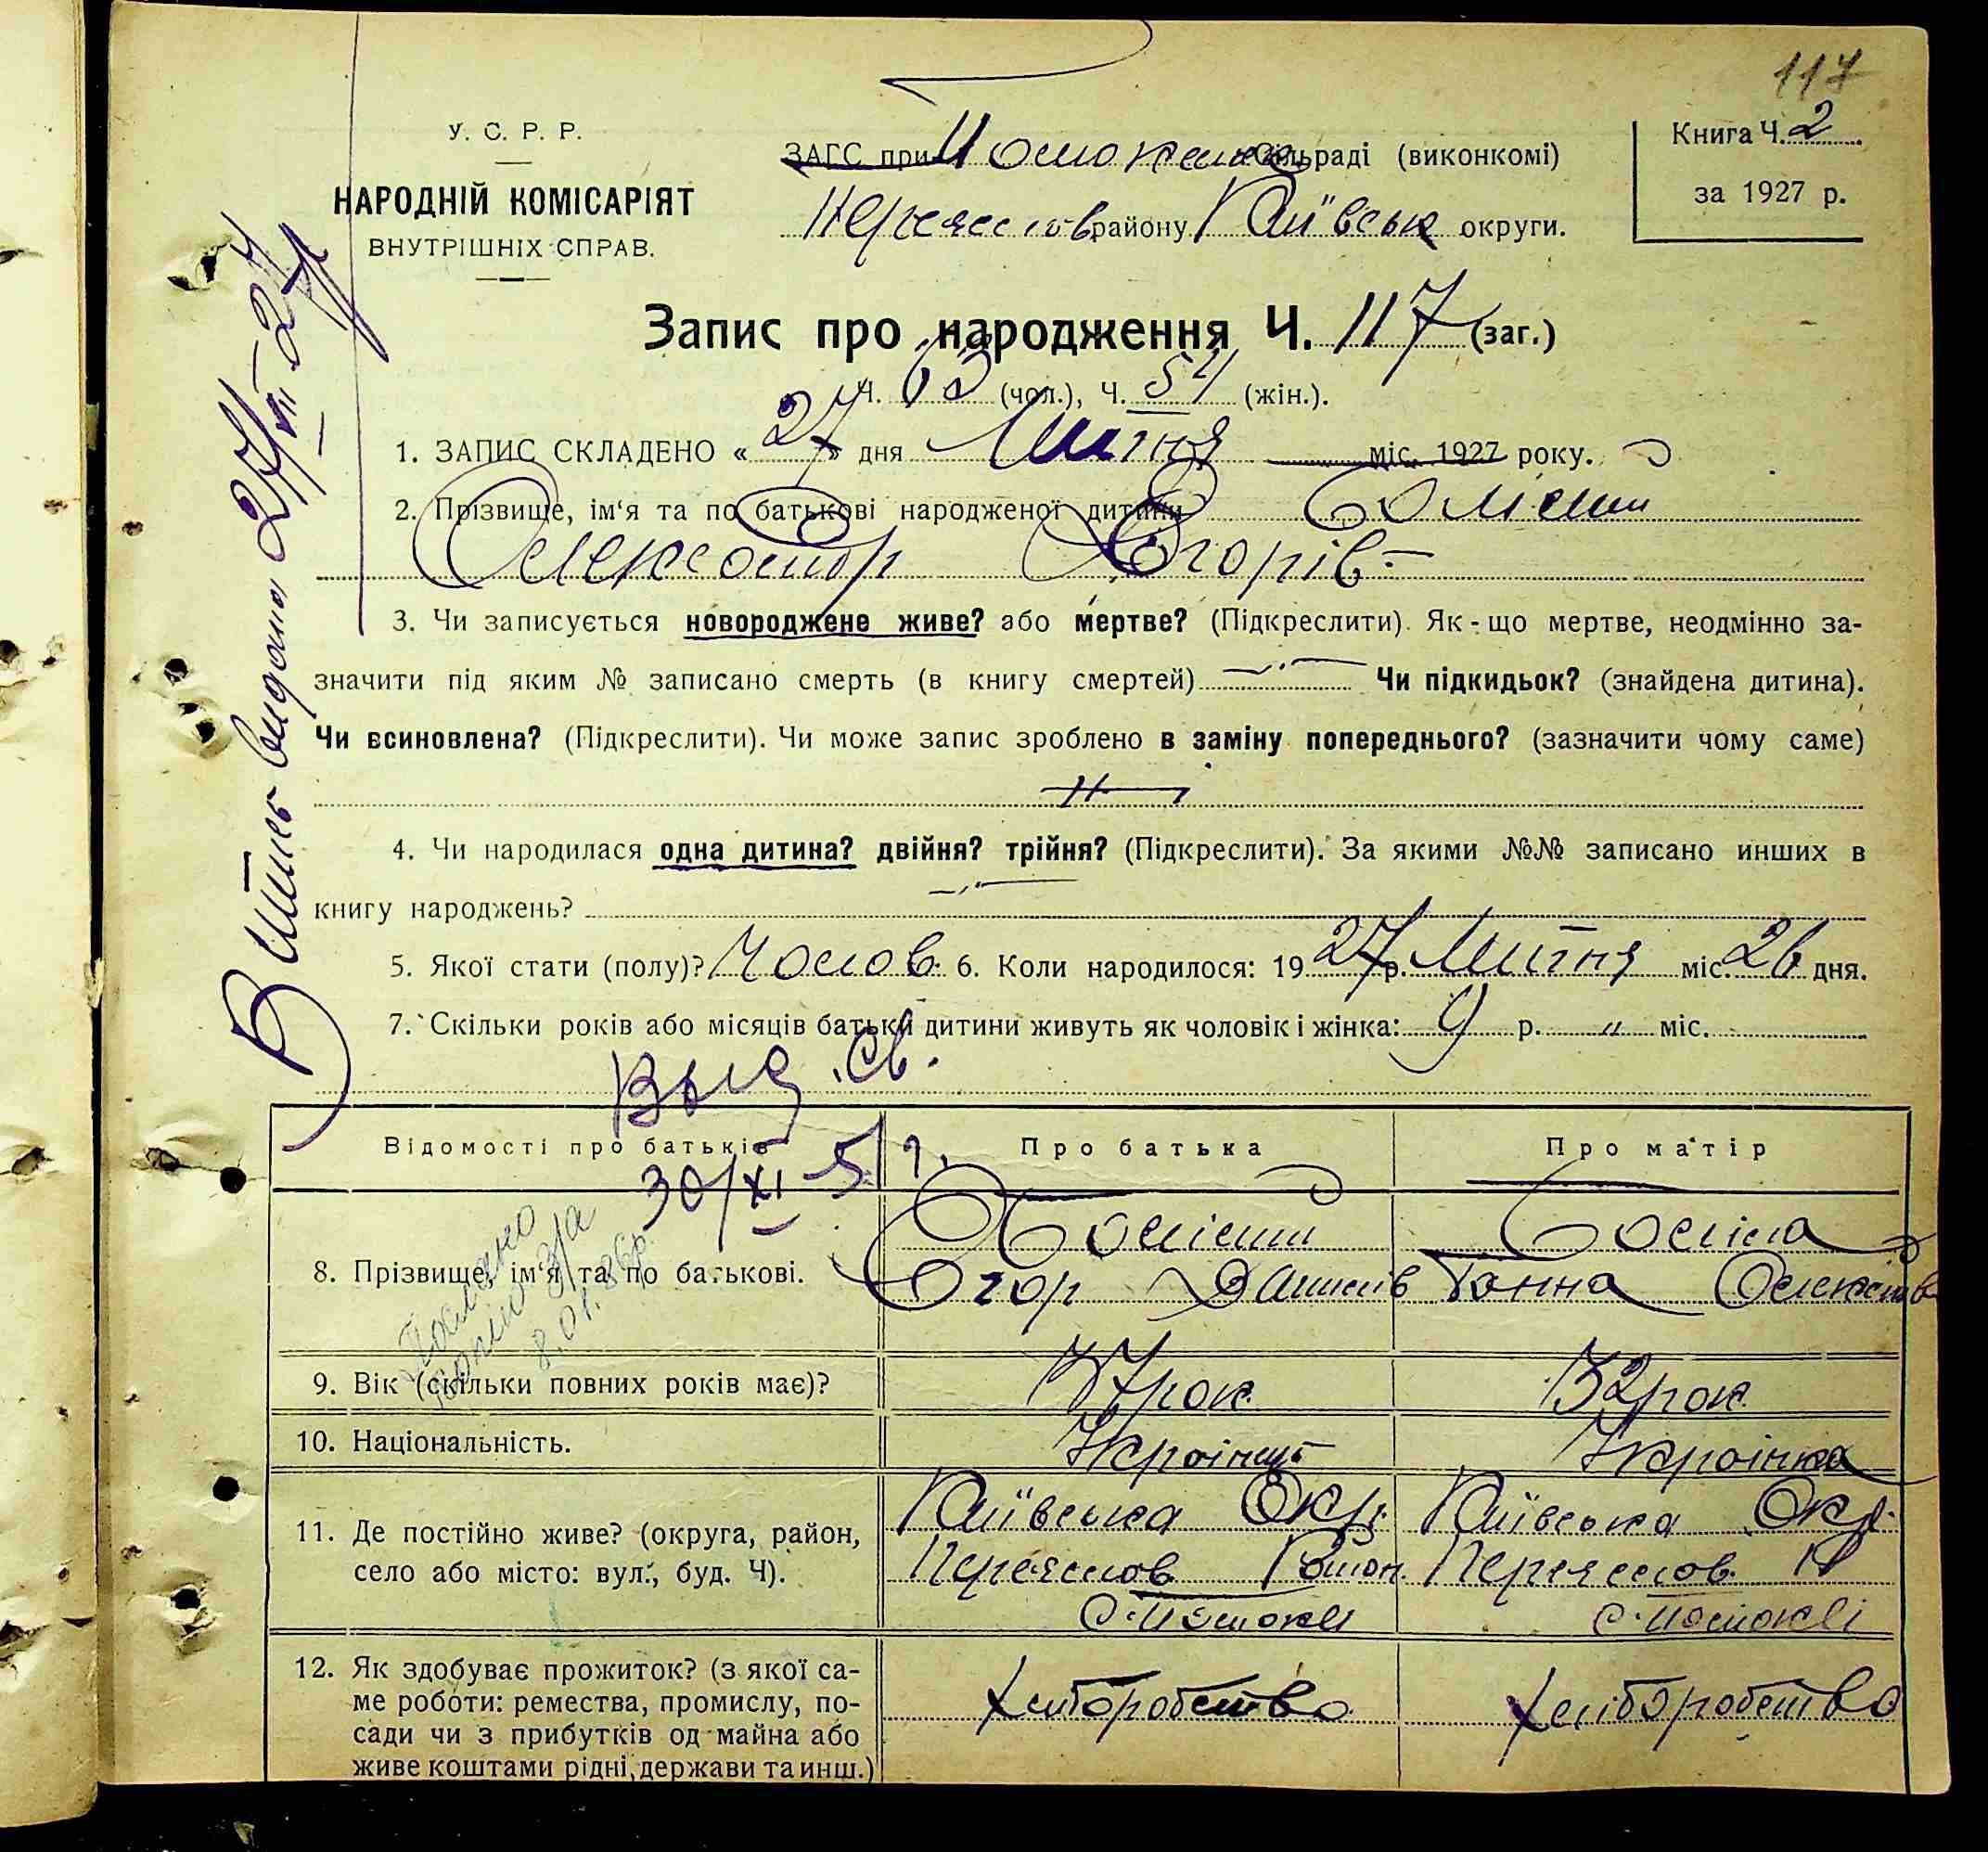 117
У. С. Р. Р.
НАРОДНІЙ КОМІСАРІЯТ
ВНУТРІШНІХ СПРАВ.
ЗАГС при Сільраді (виконкомі)
Переяслов району Київськ округи.
Книга Ч. 2
за 1927 р.
Запис про народження Ч. 117 (заг.)
Ч. 63 (чол.), Ч. 54 (жін.).
1. ЗАПИС СКЛАДЕНО « 27 » дня Липня міс. 1927 року.
2. Прізвище, ім'я та по батькові народженої дитини
Олександр Єгорів-
3. Чи записується новороджене живе? або мертве? (Підкреслити). Як-що мертве, неодмінно за-
значити під яким № записано смерть (в книгу смертей) Чи підкидьок? (знайдена дитина).
Чи всиновлена? (Підкреслити). Чи може запис зроблено в заміну попереднього? (зазначити чому саме)
4. Чи народилася одна дитина? двійня? трійня? (Підкреслити). За якими №№ записано инших в
книгу народжень?
5. Якої стати (полу)? Чолов. 6. Коли народилося: 1927 р. Липня міс. 26 дня.
7. Скільки років або місяців батьки дитини живуть як чоловік і жінка: 9 р. " міс.
Выд. св.
30/XI-51 г.
Витяг видано 27/VII-27
Відомості про батьків Про батька Про матір
8. Прізвище, ім'я та по батькові.
Єгор Данилів Ганна
8.01.86р.
9. Вік (скільки повних років має)? 37 рок. 32 рок.
10. Національність. Українець Українка
11. Де постійно живе? (округа, район,
село або місто: вул., буд. Ч).
Київська Окр. Київська Окр.
Переяслов. Район. Переяслов. Р
12. Як здобуває прожиток? (з якої са-
ме роботи: ремества, промислу, по-
сади чи з прибутків од майна або
живе коштами рідні, держави та инш.)
Хліборобство Хліборобство